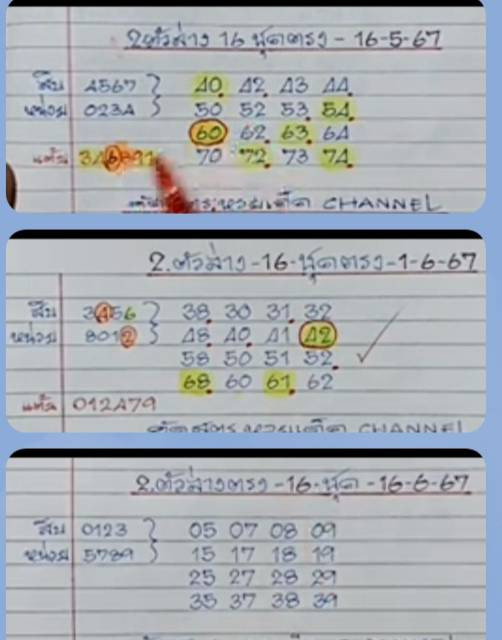 2.ตัวล่าง 16 ชุดตรง - 16-5-67
สิบ 4567 40. 42. 43 44.
หน่วย 0234 50 52 53. 54.
60 62. 63. 64
แต้ม 346891 70 72. 73 74.
CHANNEL
2.ตัวล่าง-16-ชุดตรง-1-6-67
สิบ 3456 38. 30 31. 32
หน่วย 8012 48. 40. 41 42
58 50 51 52.
68. 60 61. 62
แต้ม 012479
CHANNEL
2.ตัวล่างตรง-16-ชุด-16-6-67
สิบ 0123 05 07 08 09
หน่วย 5789 15 17 18 19
25 27 28 29
35 37 38 39